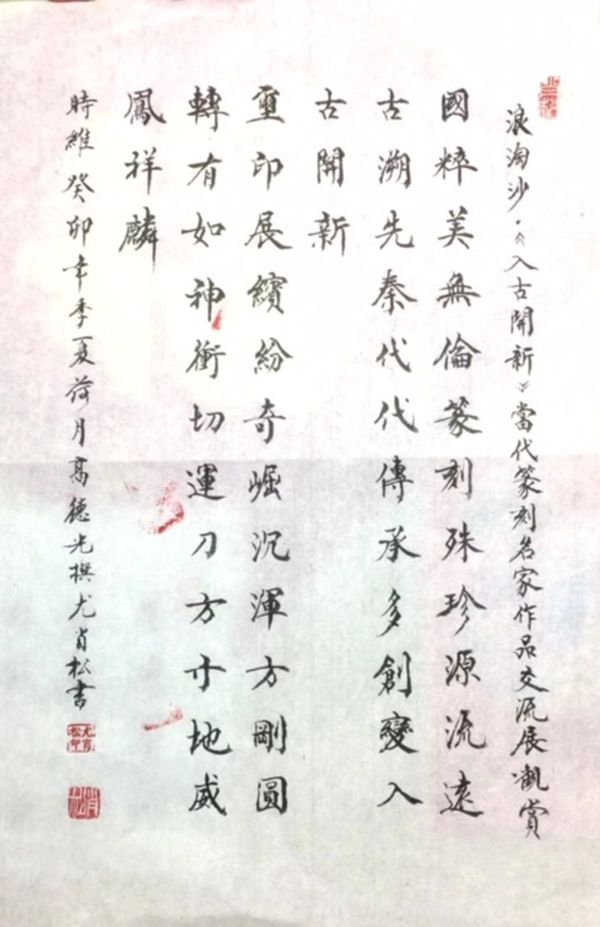 浪淘沙·《入古開新》當代篆刻名家作品交流展觀賞
國粹美無倫篆刻殊珍源流遠
古溯先秦代代傳承多創變入
古開新
璽印展繽紛奇崛沉渾方剛圓
轉有如神衝切運刀方寸地威
鳳祥麟
時維癸卯年季夏荷月高德光撰尤肖松書